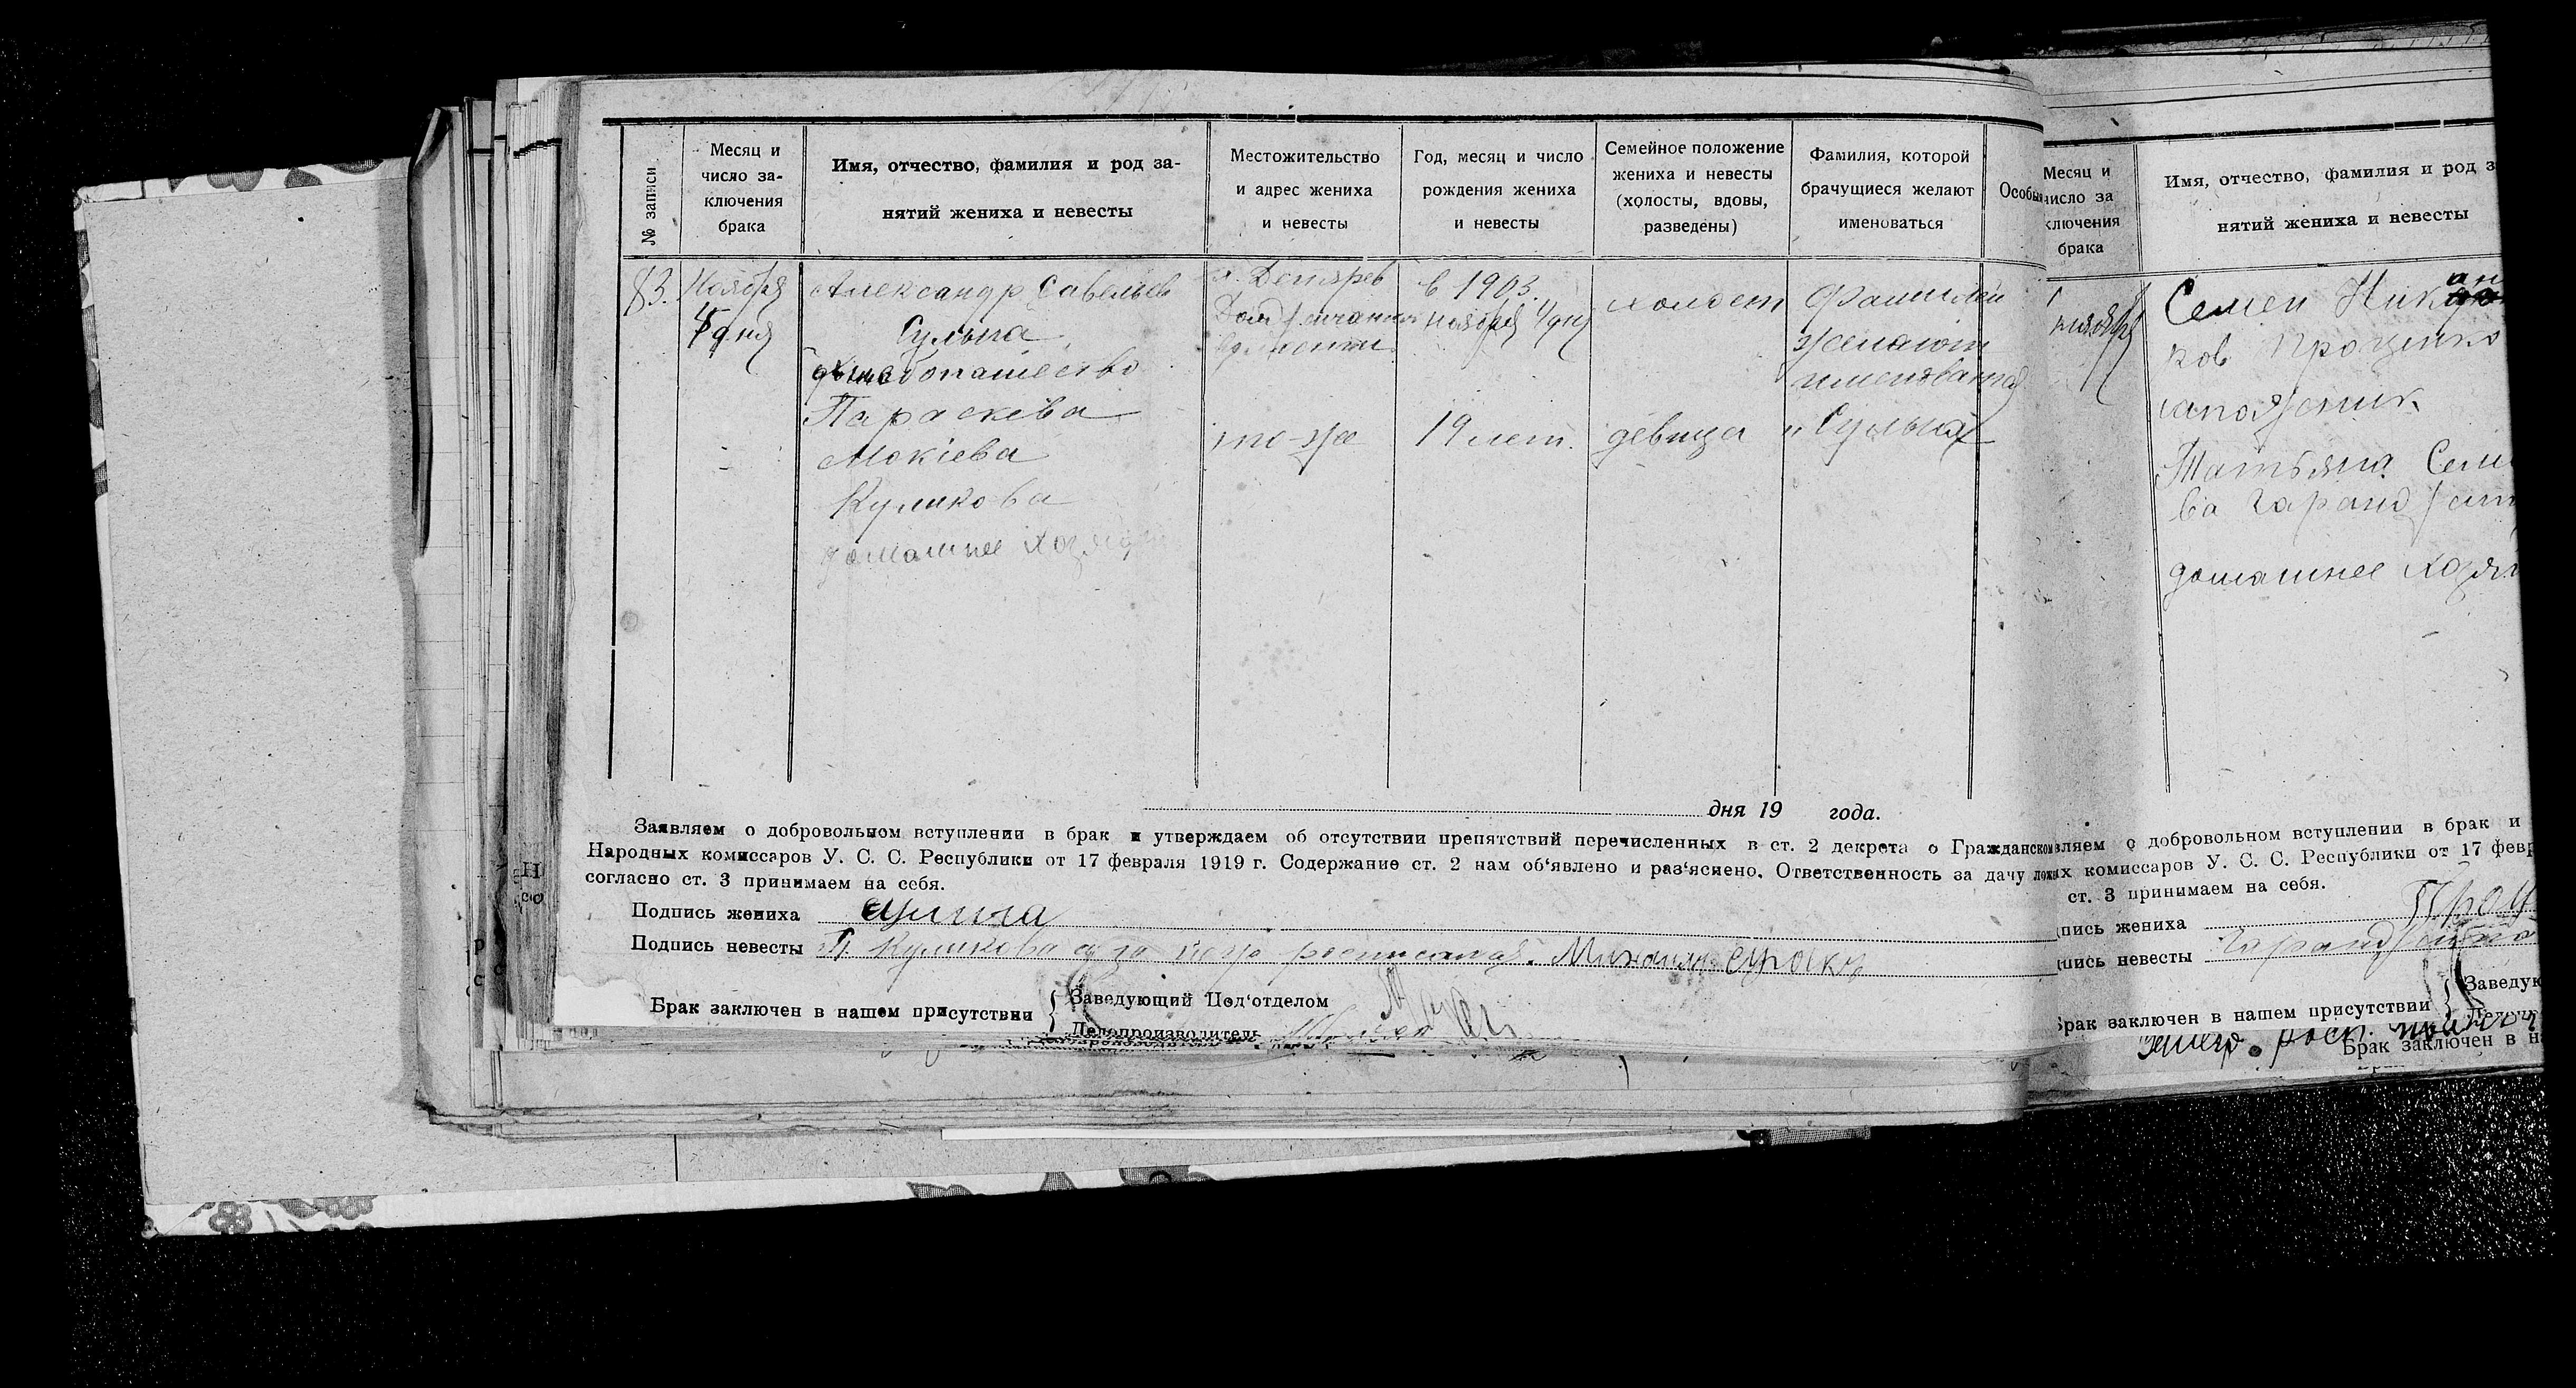 № записи
Месяц и
число за-
ключения
брака
Имя, отчество, фамилия и род за-
нятий жениха и невесты
Местожительство
и адрес жениха
и невесты
Год, месяц и число
рождения жениха
и невесты
Семейное положение
жениха и невесты
(холосты, вдовы,
разведены)
Фамилия, которой
брачущиеся желают
именоваться
Особы
83.
Ноября
дня
Александр Савельев
Сульма
хлебопашество
Параскева
Мокіева
Куликова
домашнее
в 1903
ноября 1 дня
холост
Фамилией
желают
именоваться
то-же
19 лет.
девица
„Сульма
дня 19 года.
Заявляем о добровольном вступлении в брак и утверждаем об отсутствии препятствий перечисленных в ст. 2 декрета о Гражданском
Народных комиссаров У. С. С. Республики от 17 февраля 1919 г. Содержание ст. 2 нам об‘явлено и раз‘яснено. Ответственность за дачу
согласно ст. 3 принимаем на себя.
Подпись жениха
Подпись невесты П. Куликова
Брак заключен в нашем присутствии
Заведующий Под‘отделом
Делопроизводитель
Месяц и
число за
ключения
брака
Имя, отчество, фамилия и род з
нятий жениха и невесты
ноября
Семен
ков Проценко
сапожник
Татьяна Сем
ва
домашнее хозя
вляем о добровольном вступлении в брак и
ых комиссаров У. С. С. Республики от 17 февр
ст. 3 принимаем на себя.
пись жениха Проц
пись невесты
рак заключен в нашем присутствии
Заведую
Брак заключен в н